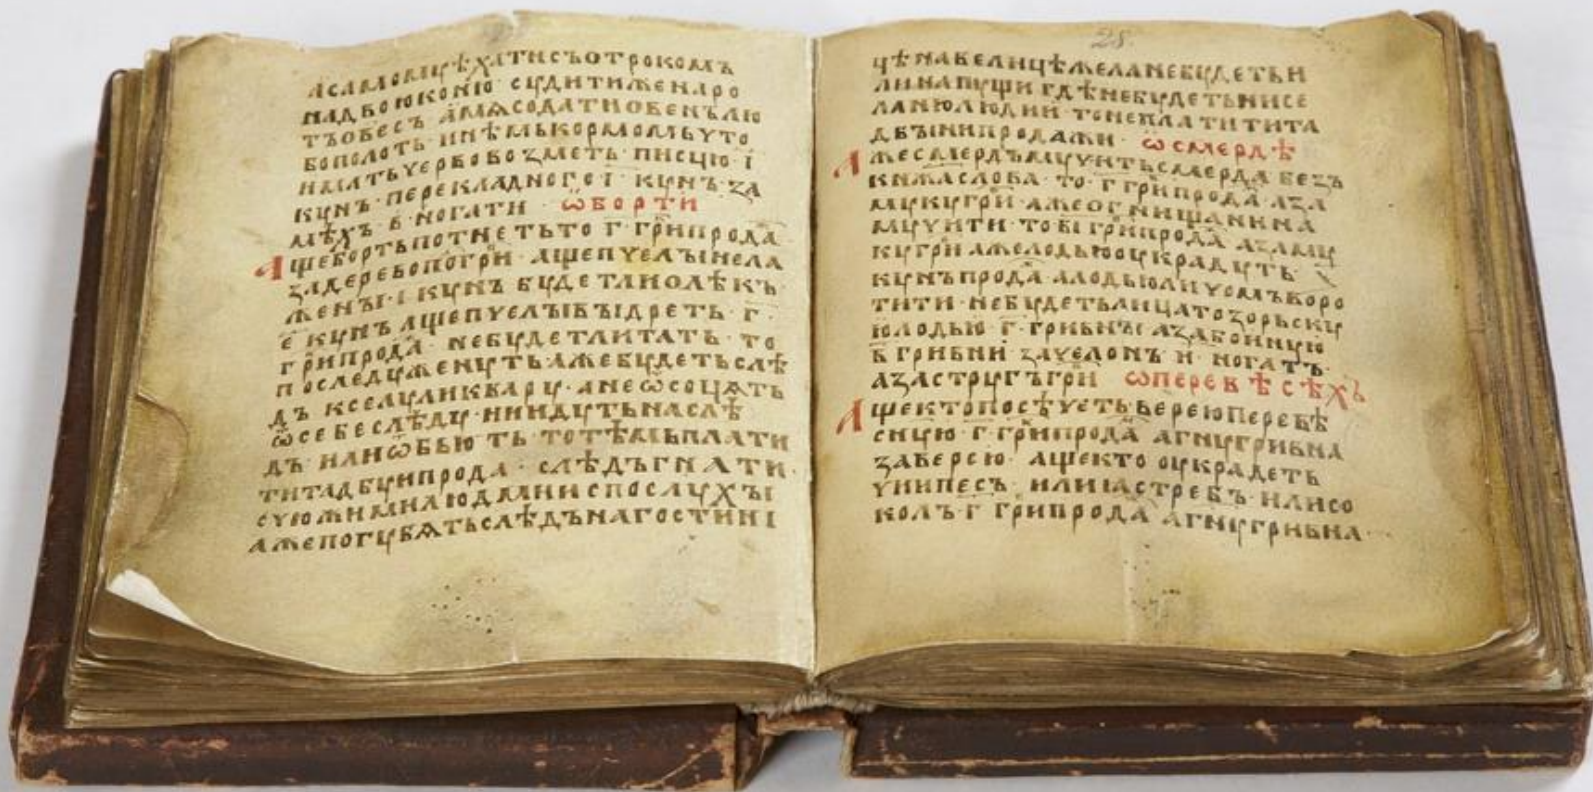 АСАМОМУѢХАТИСЪОТРОКОМЪ
НАДВОЮКОНЮ · СУДИТИЖЕНАРО
ТЪОВЕСЪ · АМѦСОДАТИОВЕНЪЛЮ
БОПОЛОТЬ · ИНѢМЬКОРМОМЬЧТО
ИМАТЬЧЕРЕВОВОЗМЕТЬ · ПИСЦЮ · І
КУНЪ · ПЕРЕКЛАДНОГО · Е · КУНЪ · ЗА
МѢХЪ · В · НОГАТИ · ѾБОРТИ
АЩЕБОРТЬПОТНЕТЬТО Г ГР҃ИПРОДА
ЗАДЕРЕВОПОГР҃И · АЩЕПЧЕЛЫНЕЛА
ЖЕНЫ · І КУНЪ БУДЕТЛИОЛѢКЪ
Е КУНЪ АЩЕПЧЕЛЫВЫДРЕТЬ · Г ·
ГР҃ИПРОДА · НЕБУДЕТЛИТАТЬ · ТО
ПОСЛЕДУЖЕНУТЬАЖЕБУДЕТЬСЛѢ
ДЪ КСЕЛУЛИКВАРУ · АНЕѾСОЦѦТЬ
ѾСЕБЕСЛѢДУ · НИИДУТЬНАСЛѢ
ДЪ ИЛИѾБЬЮ ТЬ · ТОТѢМЬПЛАТИ
ТИТАДБУИПРОДА · СЛѢДЪГНАТИ ·
СЧЮЖИМИЛЮДМИИСПОСЛУХЫ
АЖЕПОГУБѦТЬСЛѢДЪНАГОСТИНІ
28
ЦѢНАВЕЛИЦѢЖЕЛАНЕБУДЕТЬИ
ЛИНАПУЩИ ГДѢНЕБУДЕТЬНИСЕ
ЛАНЮЛЮДИИ · ТОНЕПЛАТИТИТА
ДБЫНИПРОДАЖИ · ѾСМЕРДѢ
АЖЕСМЕРДЪМУЧИТЬСМЕРДА БЕЗЪ
КНЖАСЛОВА · ТО · Г ГР҃ИПРОДА · АЗА
МУКУГР҃И · АЖЕОГНИЩАНИНА
МУЧИТИ · ТО ВІ ГР҃ИПРОДА АЗАМУ
КУГР҃И АЖЕЛОДЬЮОУКРАДУТЬ ·
КУНЪПРОДА · АЛОДЬЮЛИЧОМЪВОРО
ТИТИ · НЕБУДЕТЬЛИЦАТОЗОРЬСКУ
ЮЛОДЬЮ · Г · ГРИВНЫ АЗАБОИНУЮ
В ГРИВНИ ЗАЧЕЛОНЪ И · НОГАТЪ ·
АЗАСТРУГЪГР҃И ѾПЕРЕВѢСѢХЪ
АЩЕКТОПОСѢЧЕТЬВЕРЕЮПЕРЕВѢ
СНУЮ · Г ГР҃ИПРОДА АГНУГРИВНА
ЗАВЕРЕЮ · АЩЕКТО ОУКРАДЕТЬ
ЧИИПЕСЪ · ИЛИꙖСТРЕБЪ · ИЛИСО
КОЛЪ · Г ГР҃ИПРОДА АГНУГРИВНА